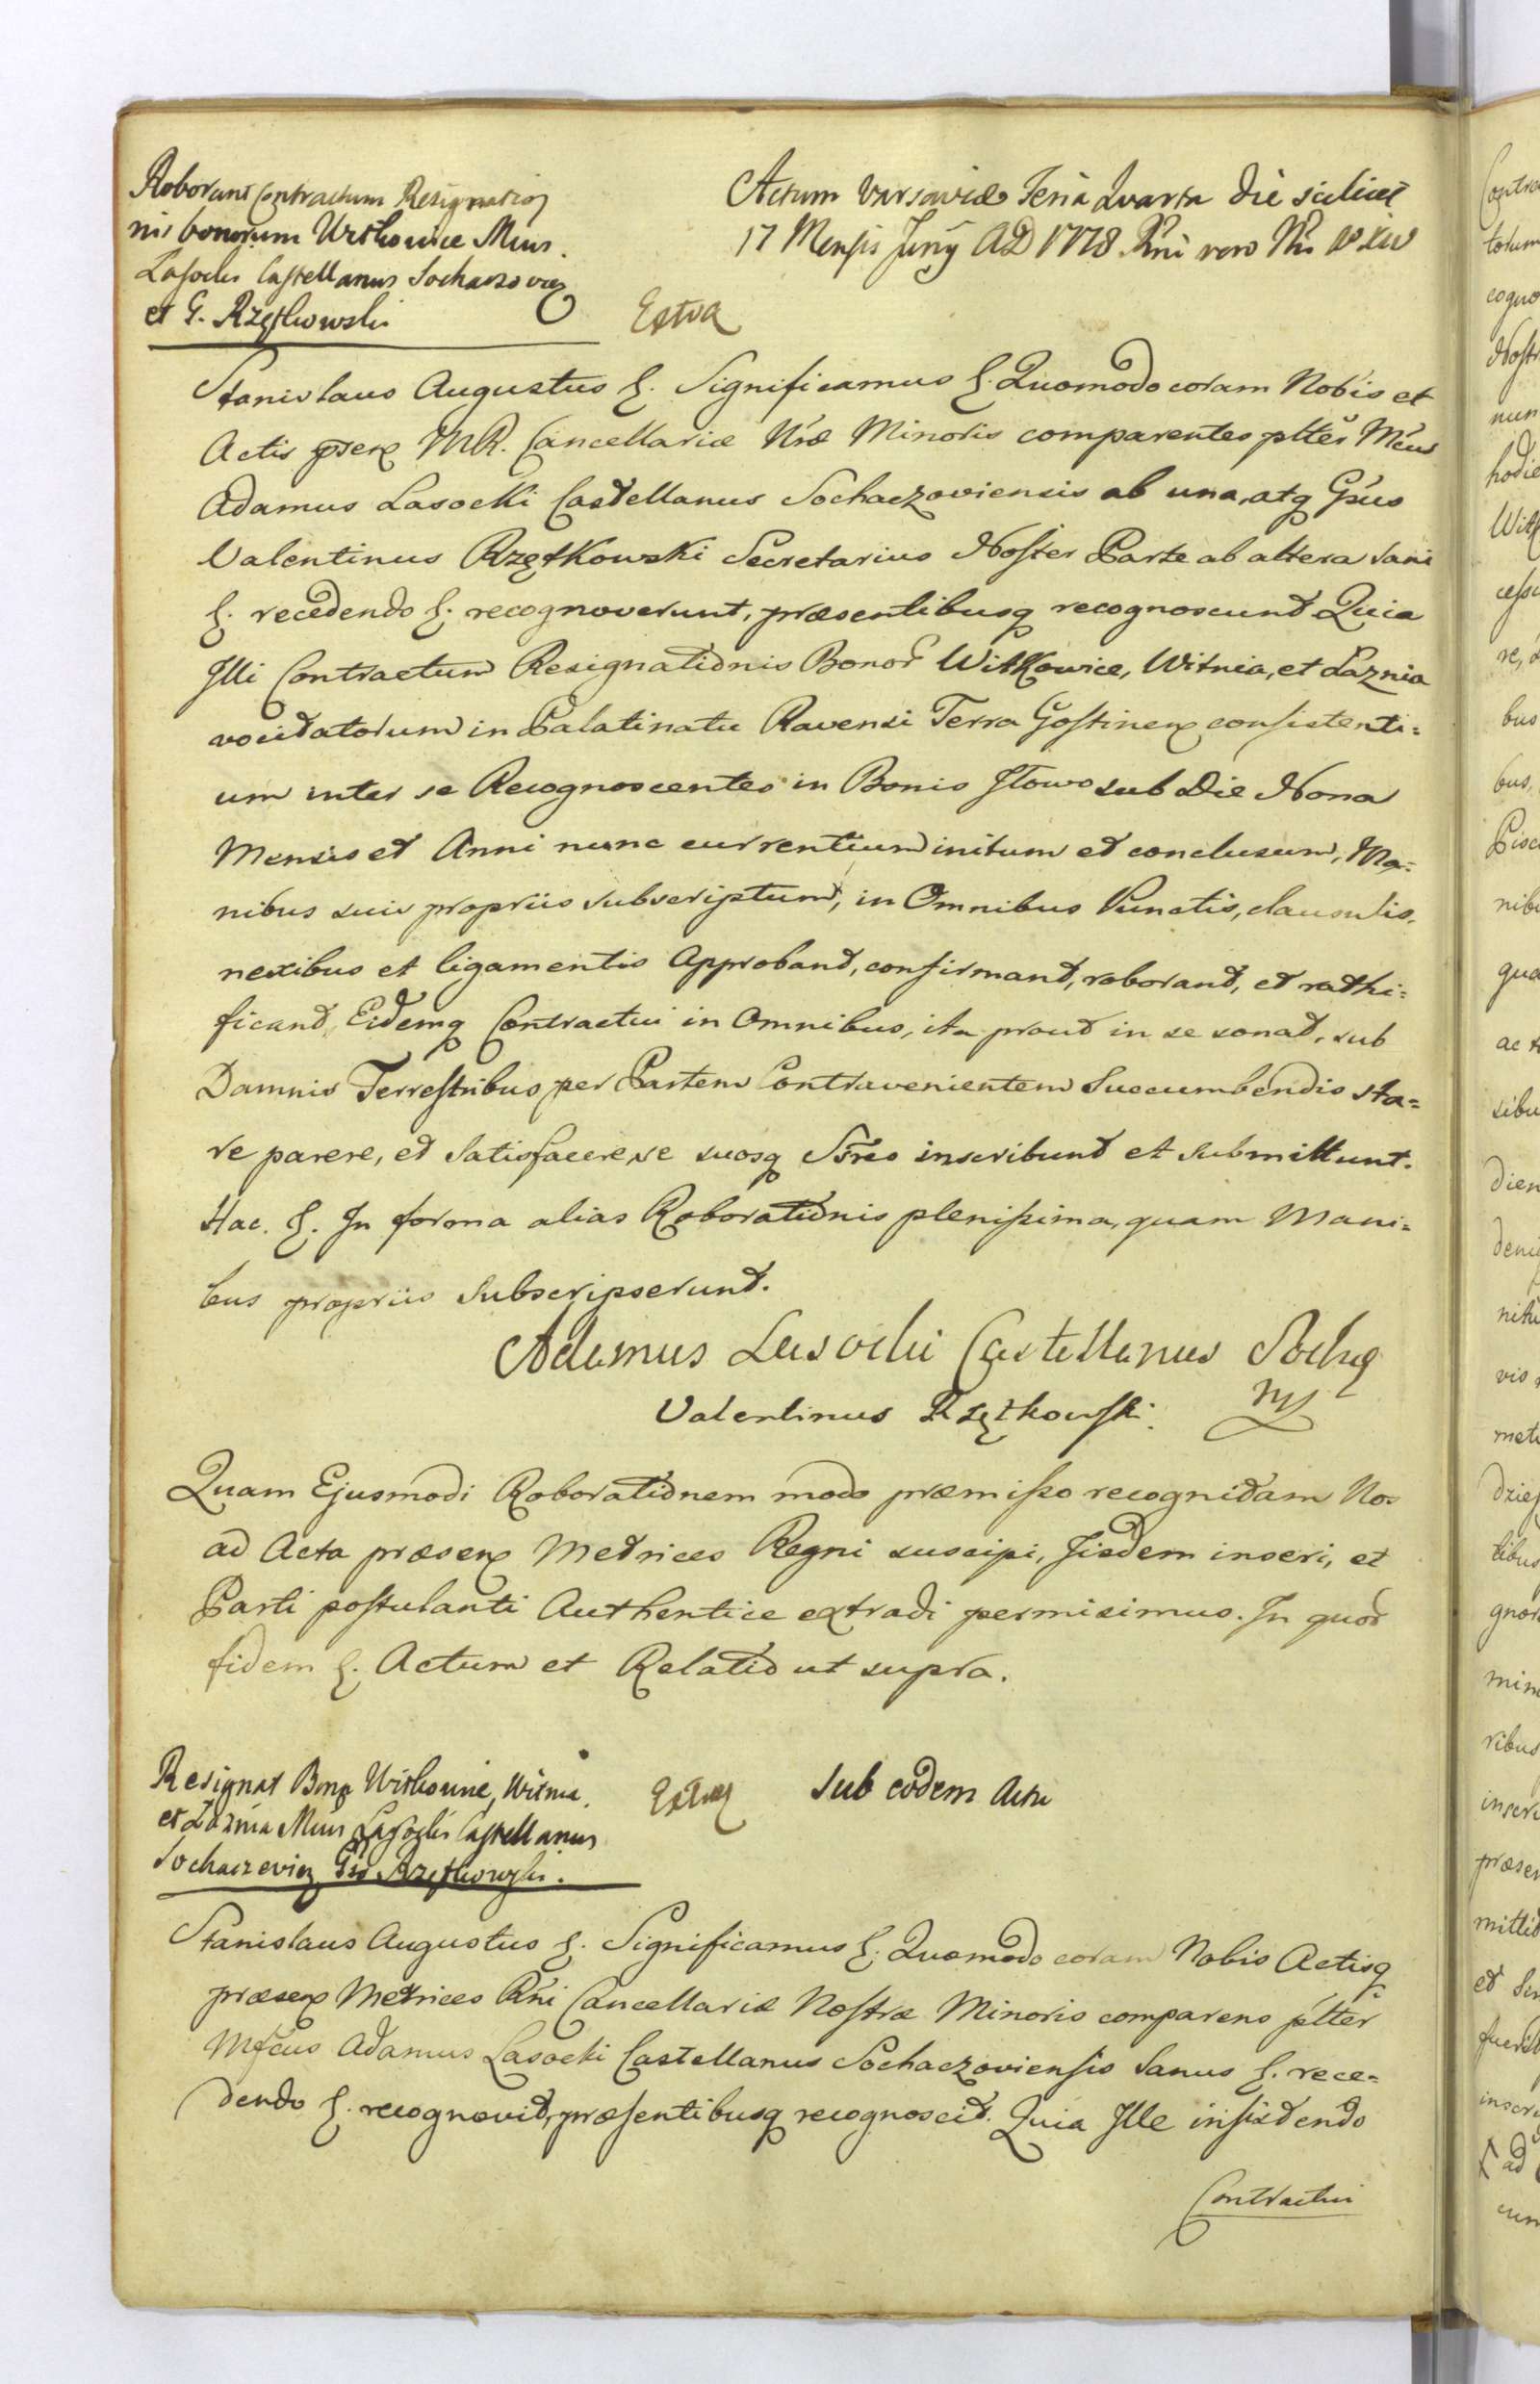 Roborant Contractum Resignatio
nis bonorum Witkowice Mcus
Lasocki Castellanus Sochaczovien
et G. Rzętkowski
Actum Varsaviæ Feria Quarta die scilicet
17 Mensis Junÿ AD 1778 Rni vero Nri XIV
Extra
Stanislaus Augustus &. Significamus &. Quomodo coram Nobis et
Actis psen MR. Cancellariæ Nræ Minoris comparentes pltter Mcus
Adamus Lasocki Castellanus Sochaczoviensis ab una, atq Gsus
Valentinus Rzętkowski Secretarius Noster Parte ab altera sani
&. recedendo &. recognoverunt, præsentibusq recognoscunt Quia
Illi Contractum Resignationis Bonor Witkowice, Witnia, et Łaznia
vocitatorum in Palatinatu Ravensi Terra Gostinen consistenti=
um inter se Recognoscentes in Bonis Iłowo sub Die Nona
Mensis et Anni nunc currentium initum et conclusum, Ma=
nibus suis propriis subscriptum, in Omnibus Punctis, clausulis,
nexibus et ligamentis Approband, confirmand, roborand, et rathi=
ficand, Eidemq Contractui in Omnibus, ita prout in se sonat, sub
Damnis Terrestribus per Partem Contravenientem Succumbendis sta=
re parere, et Satisfacere, se suosq Sfres inscribunt et submittunt.
Hac. &. In forma alias Roborationis plenissima, quam Mani=
bus propriis Subscripserunt.
Adamus Lasocki Castellanus Soch
Valentinus Rzętkowski
Quam Ejusmodi Roborationem modo præmisso recognitam Nos
ad Acta præsen Metrices Regni suscipi, Jisdem inseri, et
Parti postulanti Authentice extradi permisimus. In quor
fidem &. Actum et Relatio ut supra.
Resignat Bonor Witkowice, Witnia,
et Łaznia Mcus Lasocki Castellanus
Sochaczevien Gso Rzętkowski.
Extra
Sub eodem Actu
Stanislaus Augustus &. Significamus &. Quomodo coram Nobis Actisq
præsen Metrices Rni Cancellariæ Nostræ Minoris comparens pltter
Mfcus Adamus Lasocki Castellanus Sochaczoviensis Sanus &. rece=
dendo &. recognovit, præsentibusq recognoscit. Quia Ille insistendo
Contractui